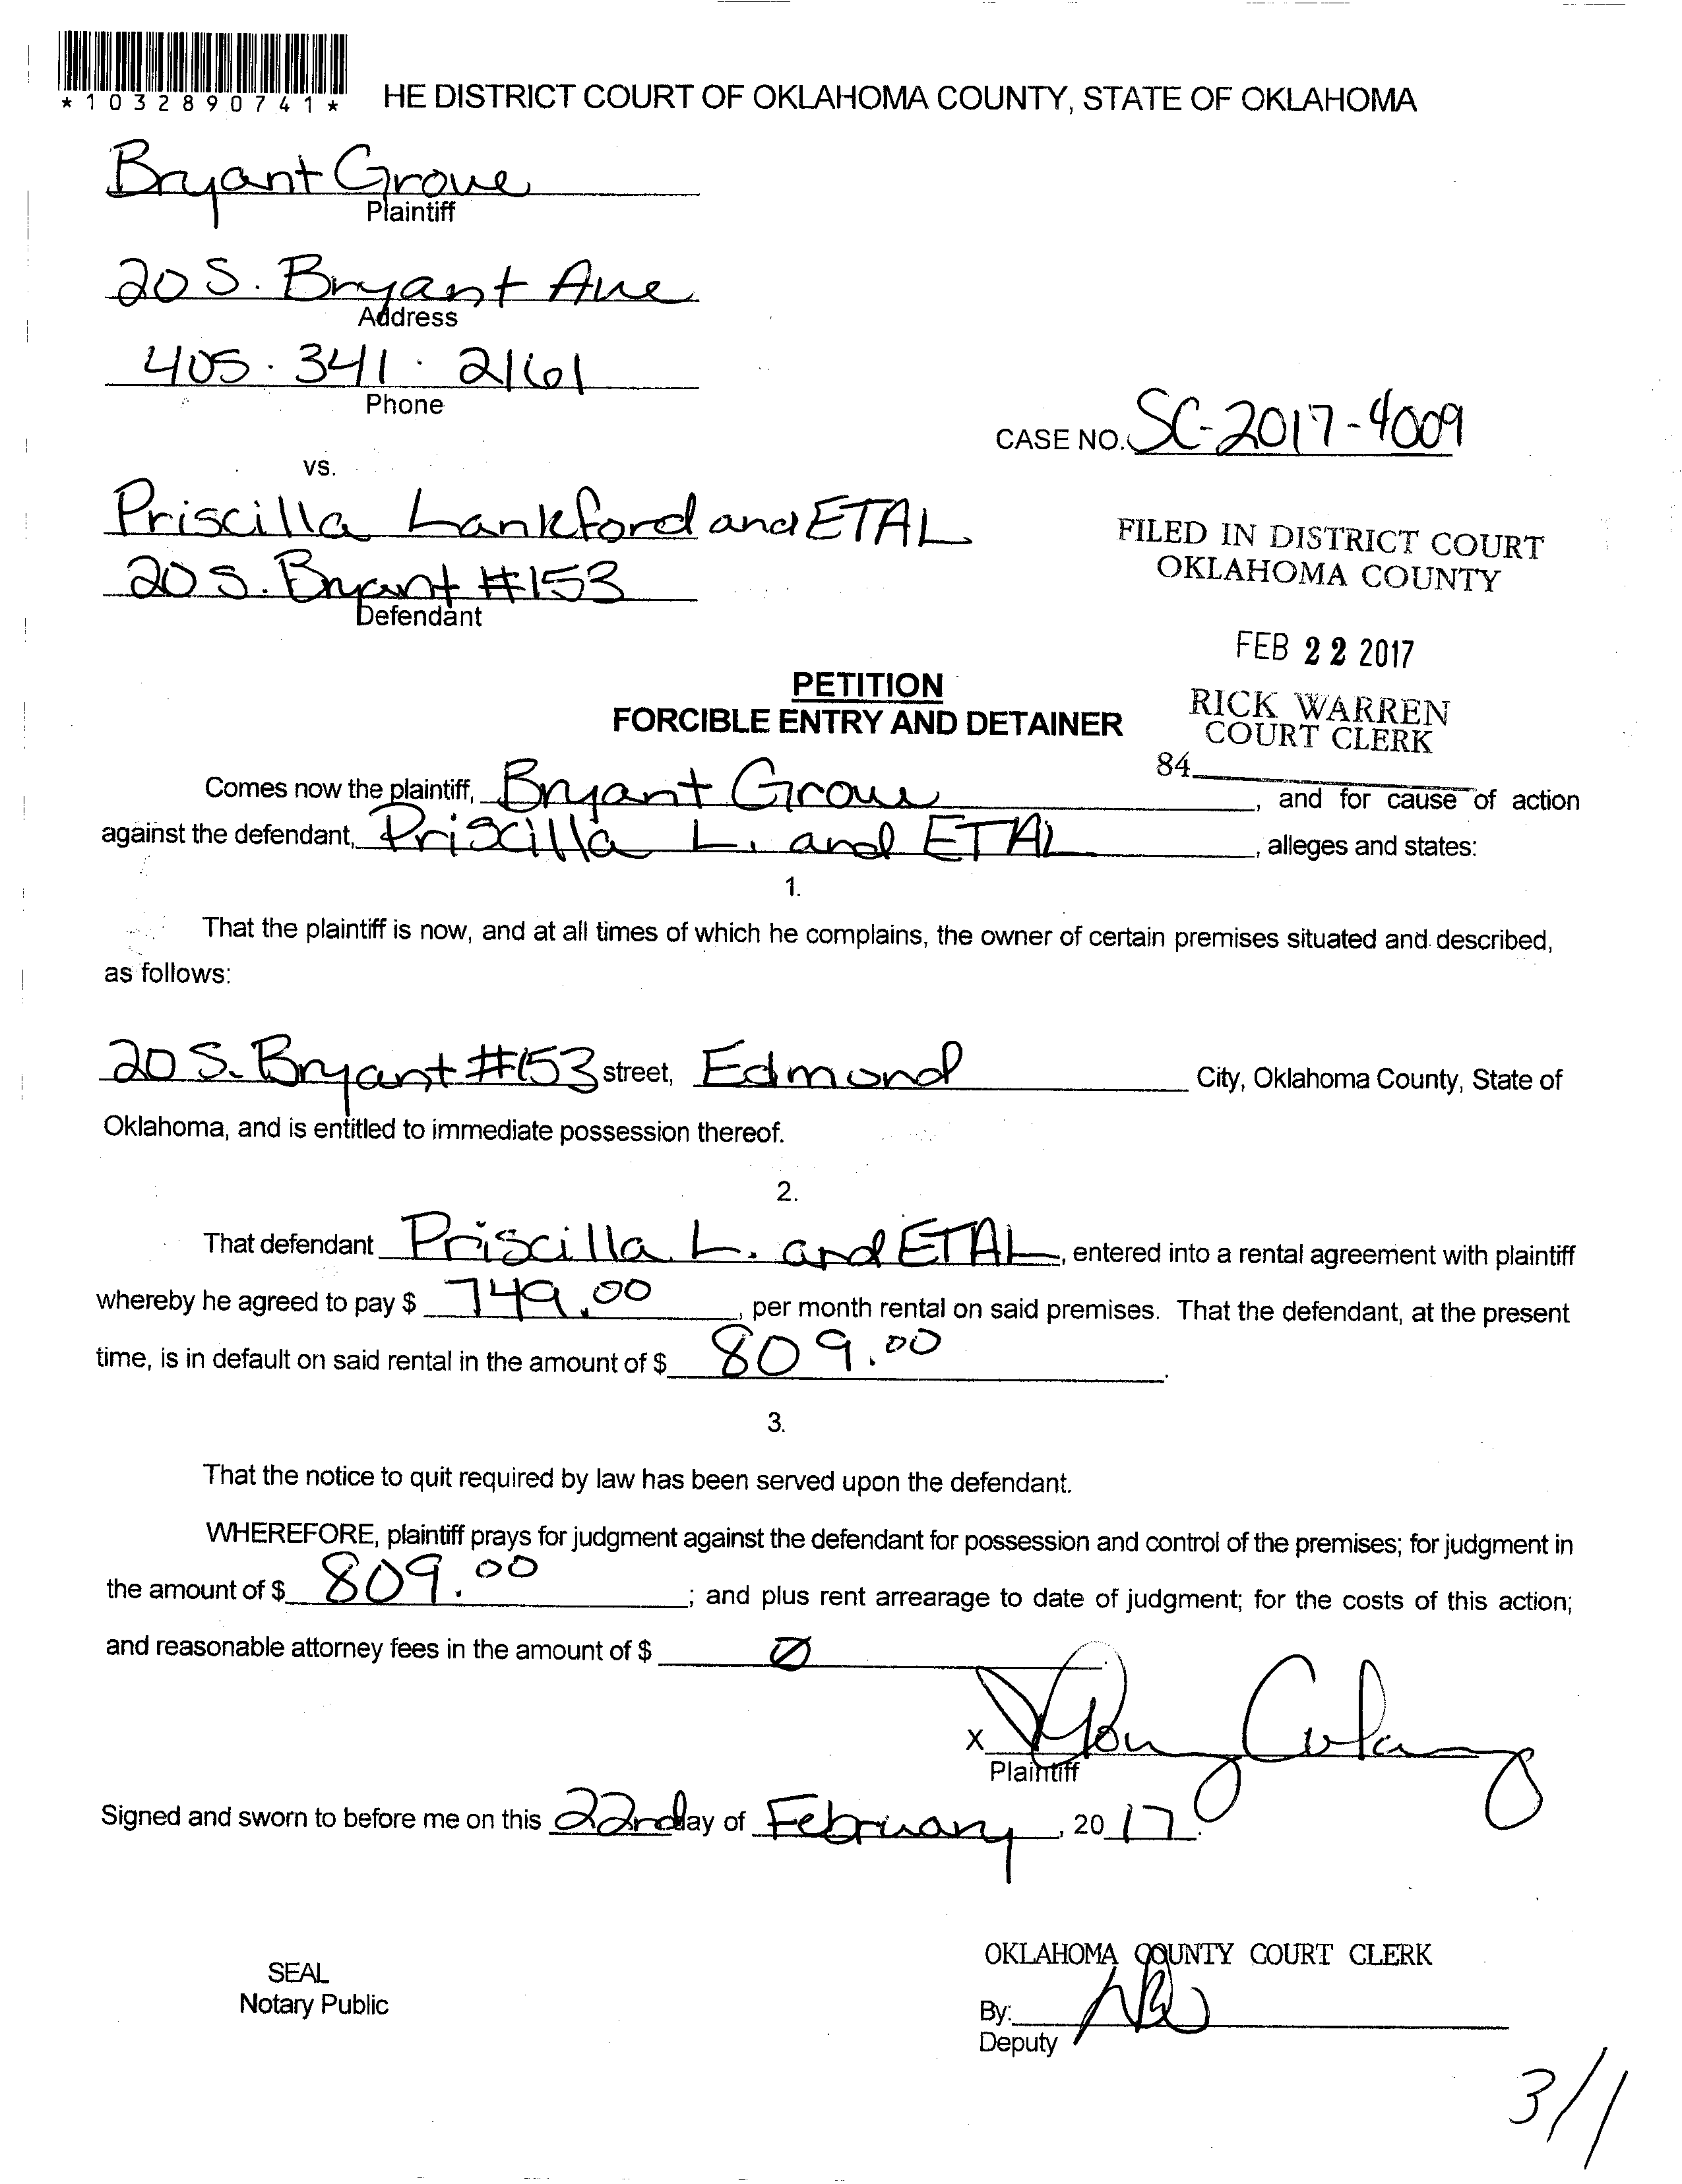 *1032890741*
HE DISTRICT COURT OF OKLAHOMA COUNTY, STATE OF OKLAHOMA
Bryant Grove
Plaintiff
20 S. Bryant Ave
Address
405.341.2161
Phone
CASE NO. SC-2017-4009
vs.
Priscilla Lankford and ETAL
20 S. Bryant #153
Defendant
FILED IN DISTRICT COURT
OKLAHOMA COUNTY
FEB 22 2017
RICK WARREN
COURT CLERK
84
PETITION
FORCIBLE ENTRY AND DETAINER
Comes now the plaintiff, Bryant Grove, and for cause of action
against the defendant, Priscilla L. and ETAL, alleges and states:
1.
That the plaintiff is now, and at all times of which he complains, the owner of certain premises situated and described,
as follows:
20 S. Bryant #153 street, Edmond City, Oklahoma County, State of
Oklahoma, and is entitled to immediate possession thereof.
2.
That defendant Priscilla L. and ETAL, entered into a rental agreement with plaintiff
whereby he agreed to pay $ 749.00, per month rental on said premises. That the defendant, at the present
time, is in default on said rental in the amount of $ 809.00.
3.
That the notice to quit required by law has been served upon the defendant.
WHEREFORE, plaintiff prays for judgment against the defendant for possession and control of the premises; for judgment in
the amount of $ 809.00; and plus rent arrearage to date of judgment; for the costs of this action;
and reasonable attorney fees in the amount of $ Ø.
X
Plaintiff
Signed and sworn to before me on this 22nd day of February, 2017.
OKLAHOMA COUNTY COURT CLERK
SEAL
Notary Public
By:
Deputy
3/1